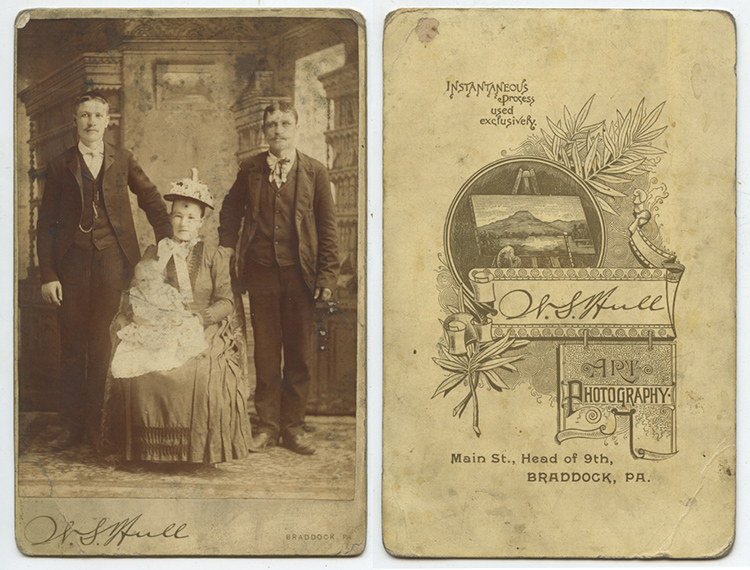 W. S. Hull
BRADDOCK, PA.
INSTANTANEOUS
Process
used
exclusively.
W. S. Hull
ART
PHOTOGRAPHY.
Main St., Head of 9th,
BRADDOCK, PA.